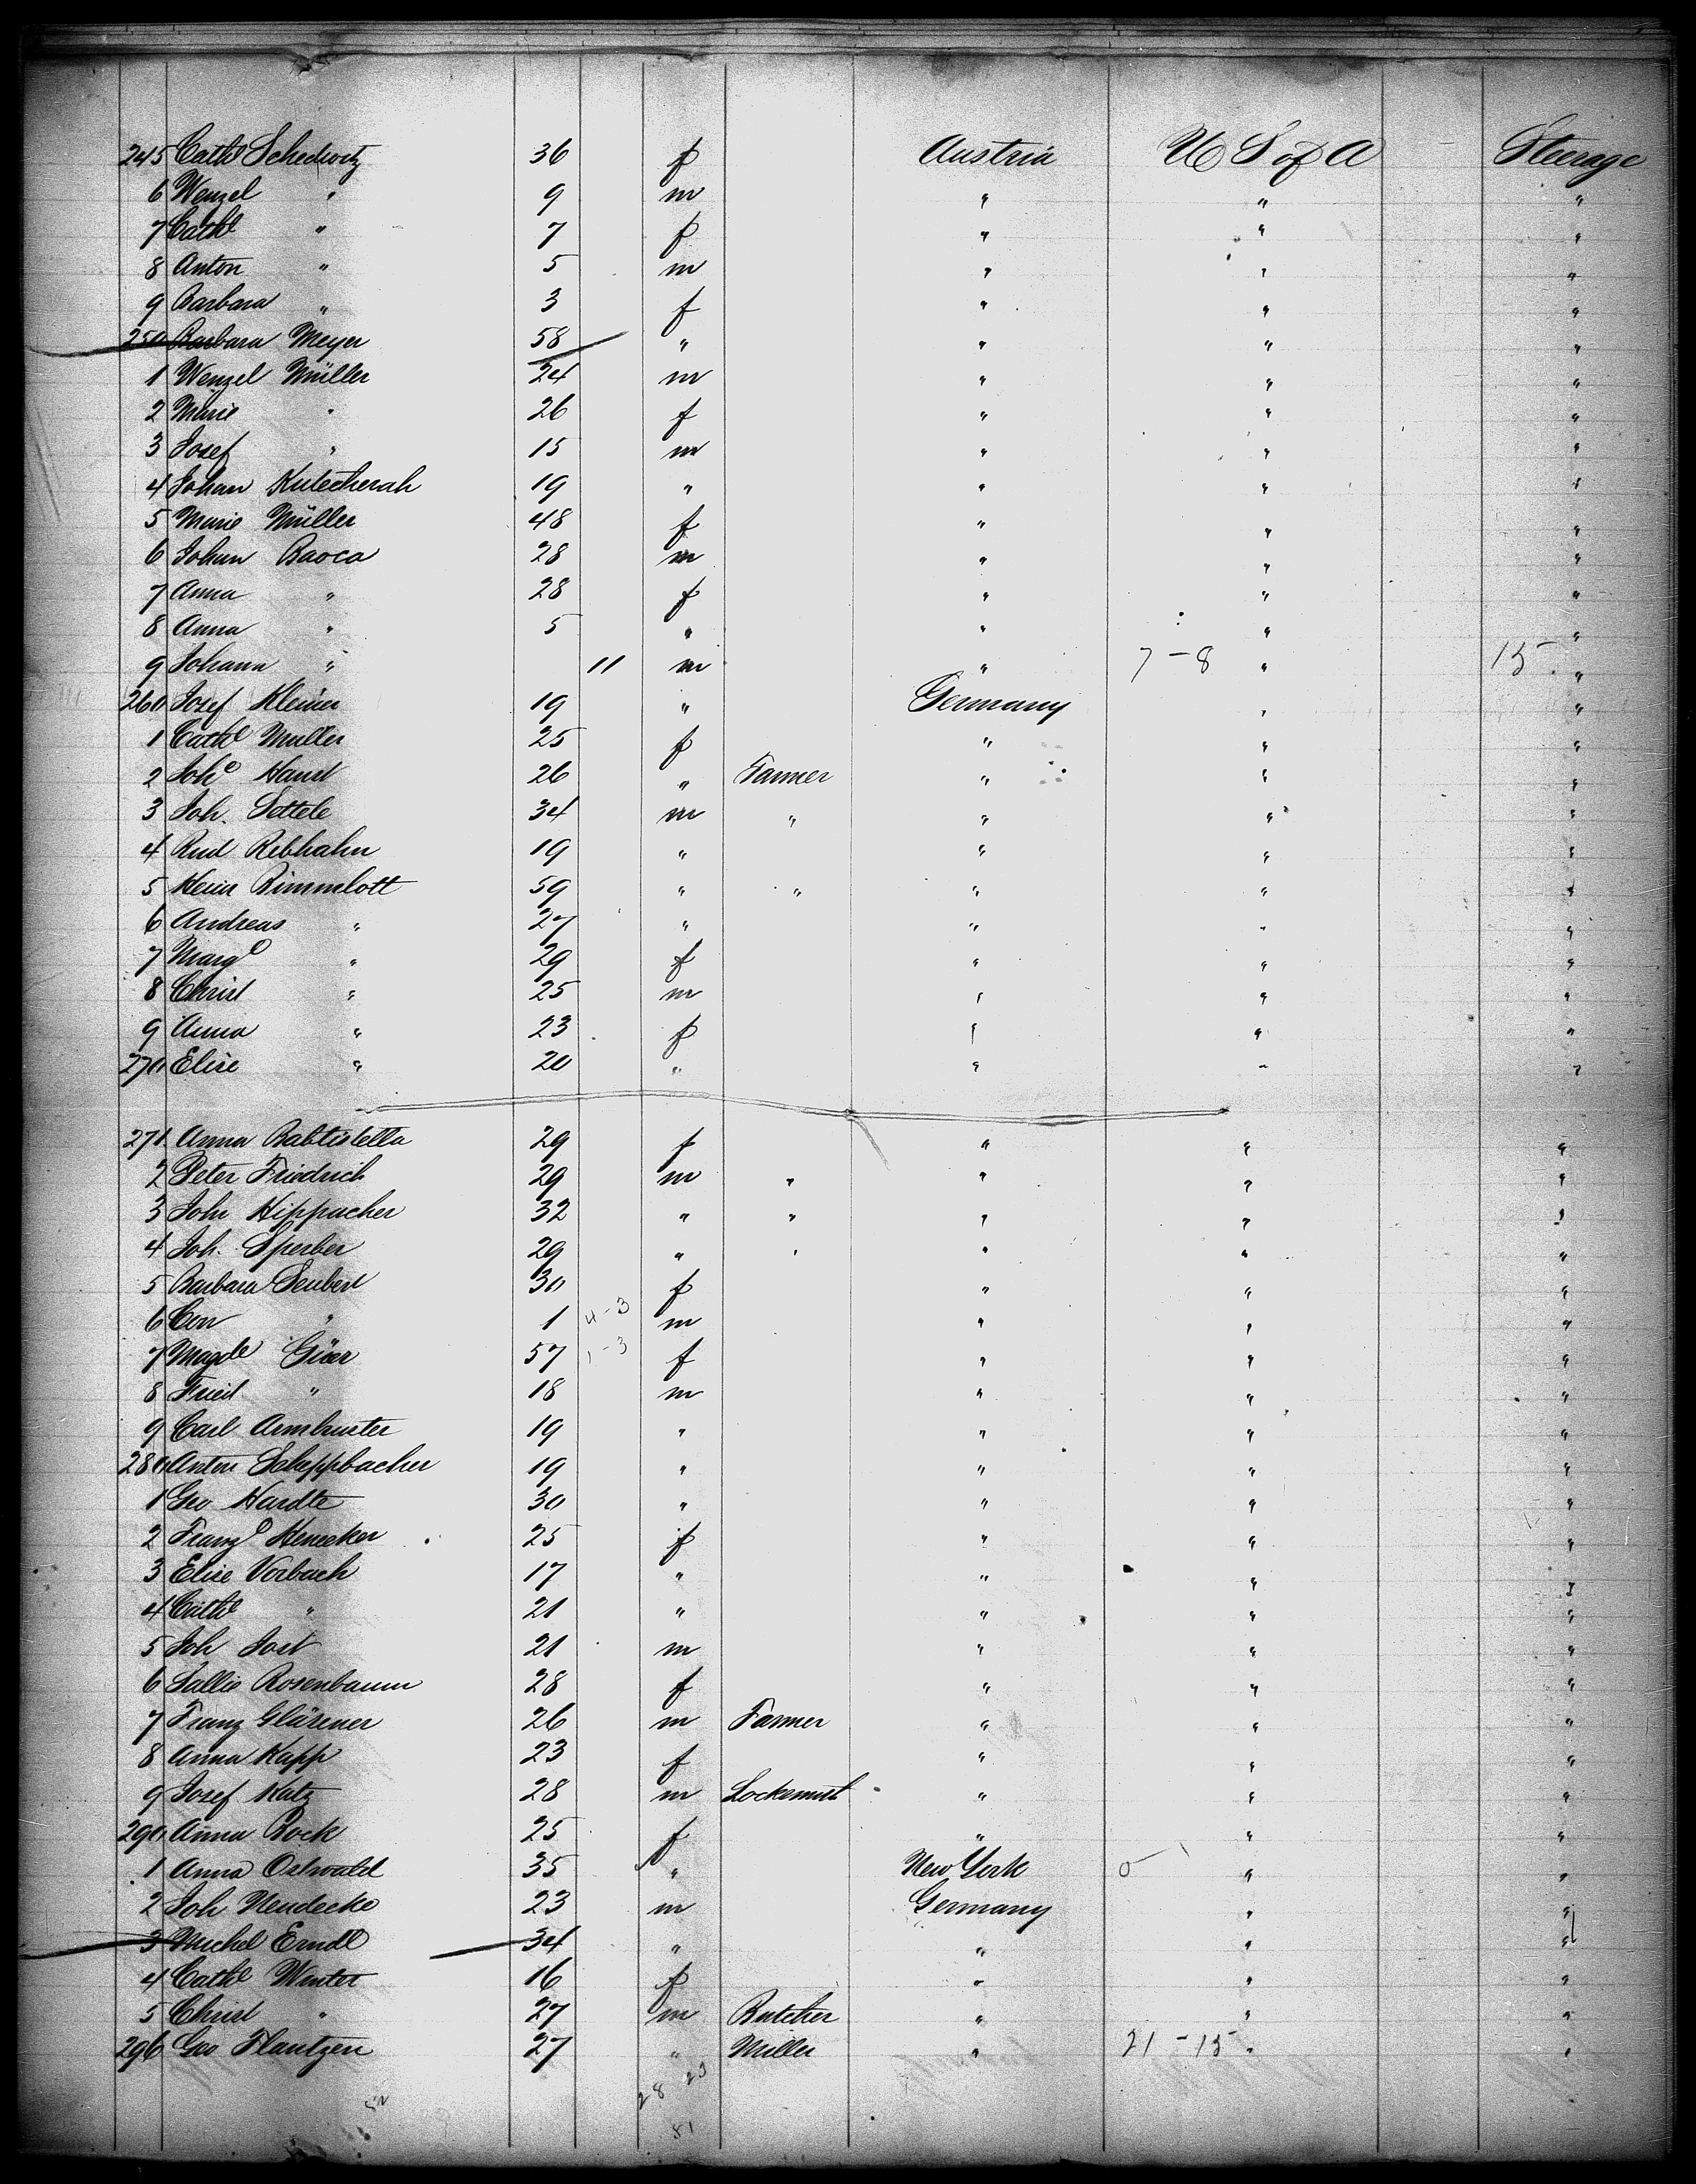 245 Cath Schediwtz 36 f Austria U S of A Steerage
6 Wenzel " 9 m " " "
7 Cath " 7 f " " "
8 Anton " 5 m " " "
9 Barbara " 3 f " " "
250 Barbara Meyer 58 " " " "
1 Wenzel Müller 24 m " " "
2 Marie " 26 f " " "
3 Josef " 15 m " " "
4 Johan Kutecherah 19 " " " "
5 Marie Müller 48 f " " "
6 Johan Baoca 28 m " " "
7 Anna " 28 f " " "
8 Anna " 5 " " " "
9 Johann " 11 m " 7-8 " 15 "
260 Josef Kleiner 19 " Germany " "
1 Cath Muller 25 f " " "
2 Joh Hanst 26 " Farmer " " "
3 Joh. Settele 34 m " " " "
4 Rud Rebhahn 19 " " " "
5 Heinr Bimmlott 59 " " " " "
6 Andreas " 27 " " " "
7 Marg " 29 f " " "
8 Christ " 25 m " " "
9 Anna " 23 f " " "
270 Elise " 20 " " " "
271 Anna Babtistella 29 f " " "
2 Peter Friedrich 29 m " " " "
3 Johr Hippacher 32 " " " " "
4 Joh. Sperber 29 " " " " "
5 Barbara Seubert 30 f " " "
6 Con " 1 4-3 m " " "
7 Magde Güer 57 1-3 f " " "
8 Fried " 18 m " " "
9 Carl Armbruster 19 " " " "
280 Anton Scheppbacher 19 " " " "
1 Geo Hardte 30 " " " "
2 Franz Henecker 25 f " " "
3 Elise Vorbach 17 " " " "
4 Cath " 21 " " " "
5 Joh Jost 21 m " " "
6 Sallie Rosenbaum 28 f " " "
7 Franz Gläsener 26 m Farmer " " "
8 Anna Kapp 23 f " " "
9 Josef Katz 28 m Locksmith " " "
290 Anna Bock 25 f " " "
1 Anna Ostwald 35 " New York 0 " "
2 Joh Neudecke 23 m Germany " "
3 Michel Erndl 34 " " " "
4 Cath Winter 16 f " " "
5 Christ " 27 m Butcher " " "
296 Geo Flantzen 27 " Miller " 21-15 " "
28 23
81